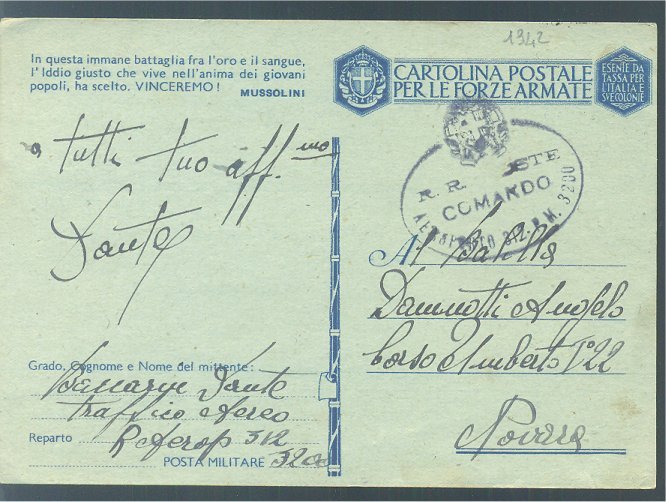 1942
In questa immane battaglia fra l'oro e il sangue,
l'Iddio giusto che vive nell'anima dei giovani
popoli, ha scelto. VINCEREMO!
MUSSOLINI
CARTOLINA POSTALE
PER LE FORZE ARMATE
ESENTE DA
TASSA PER
L'ITALIA E
SVE COLONIE
a tutti tuo aff.mo
Dante
R. R. STE
COMANDO
AEROPORTO 312 - P.M. 3200
Al Balilla
Angelo
Corso Umberto I° 22
Novara
Grado, Cognome e Nome del mittente:
Dante
Traffico Aereo
Reparto R. Aerop 312
POSTA MILITARE 3200